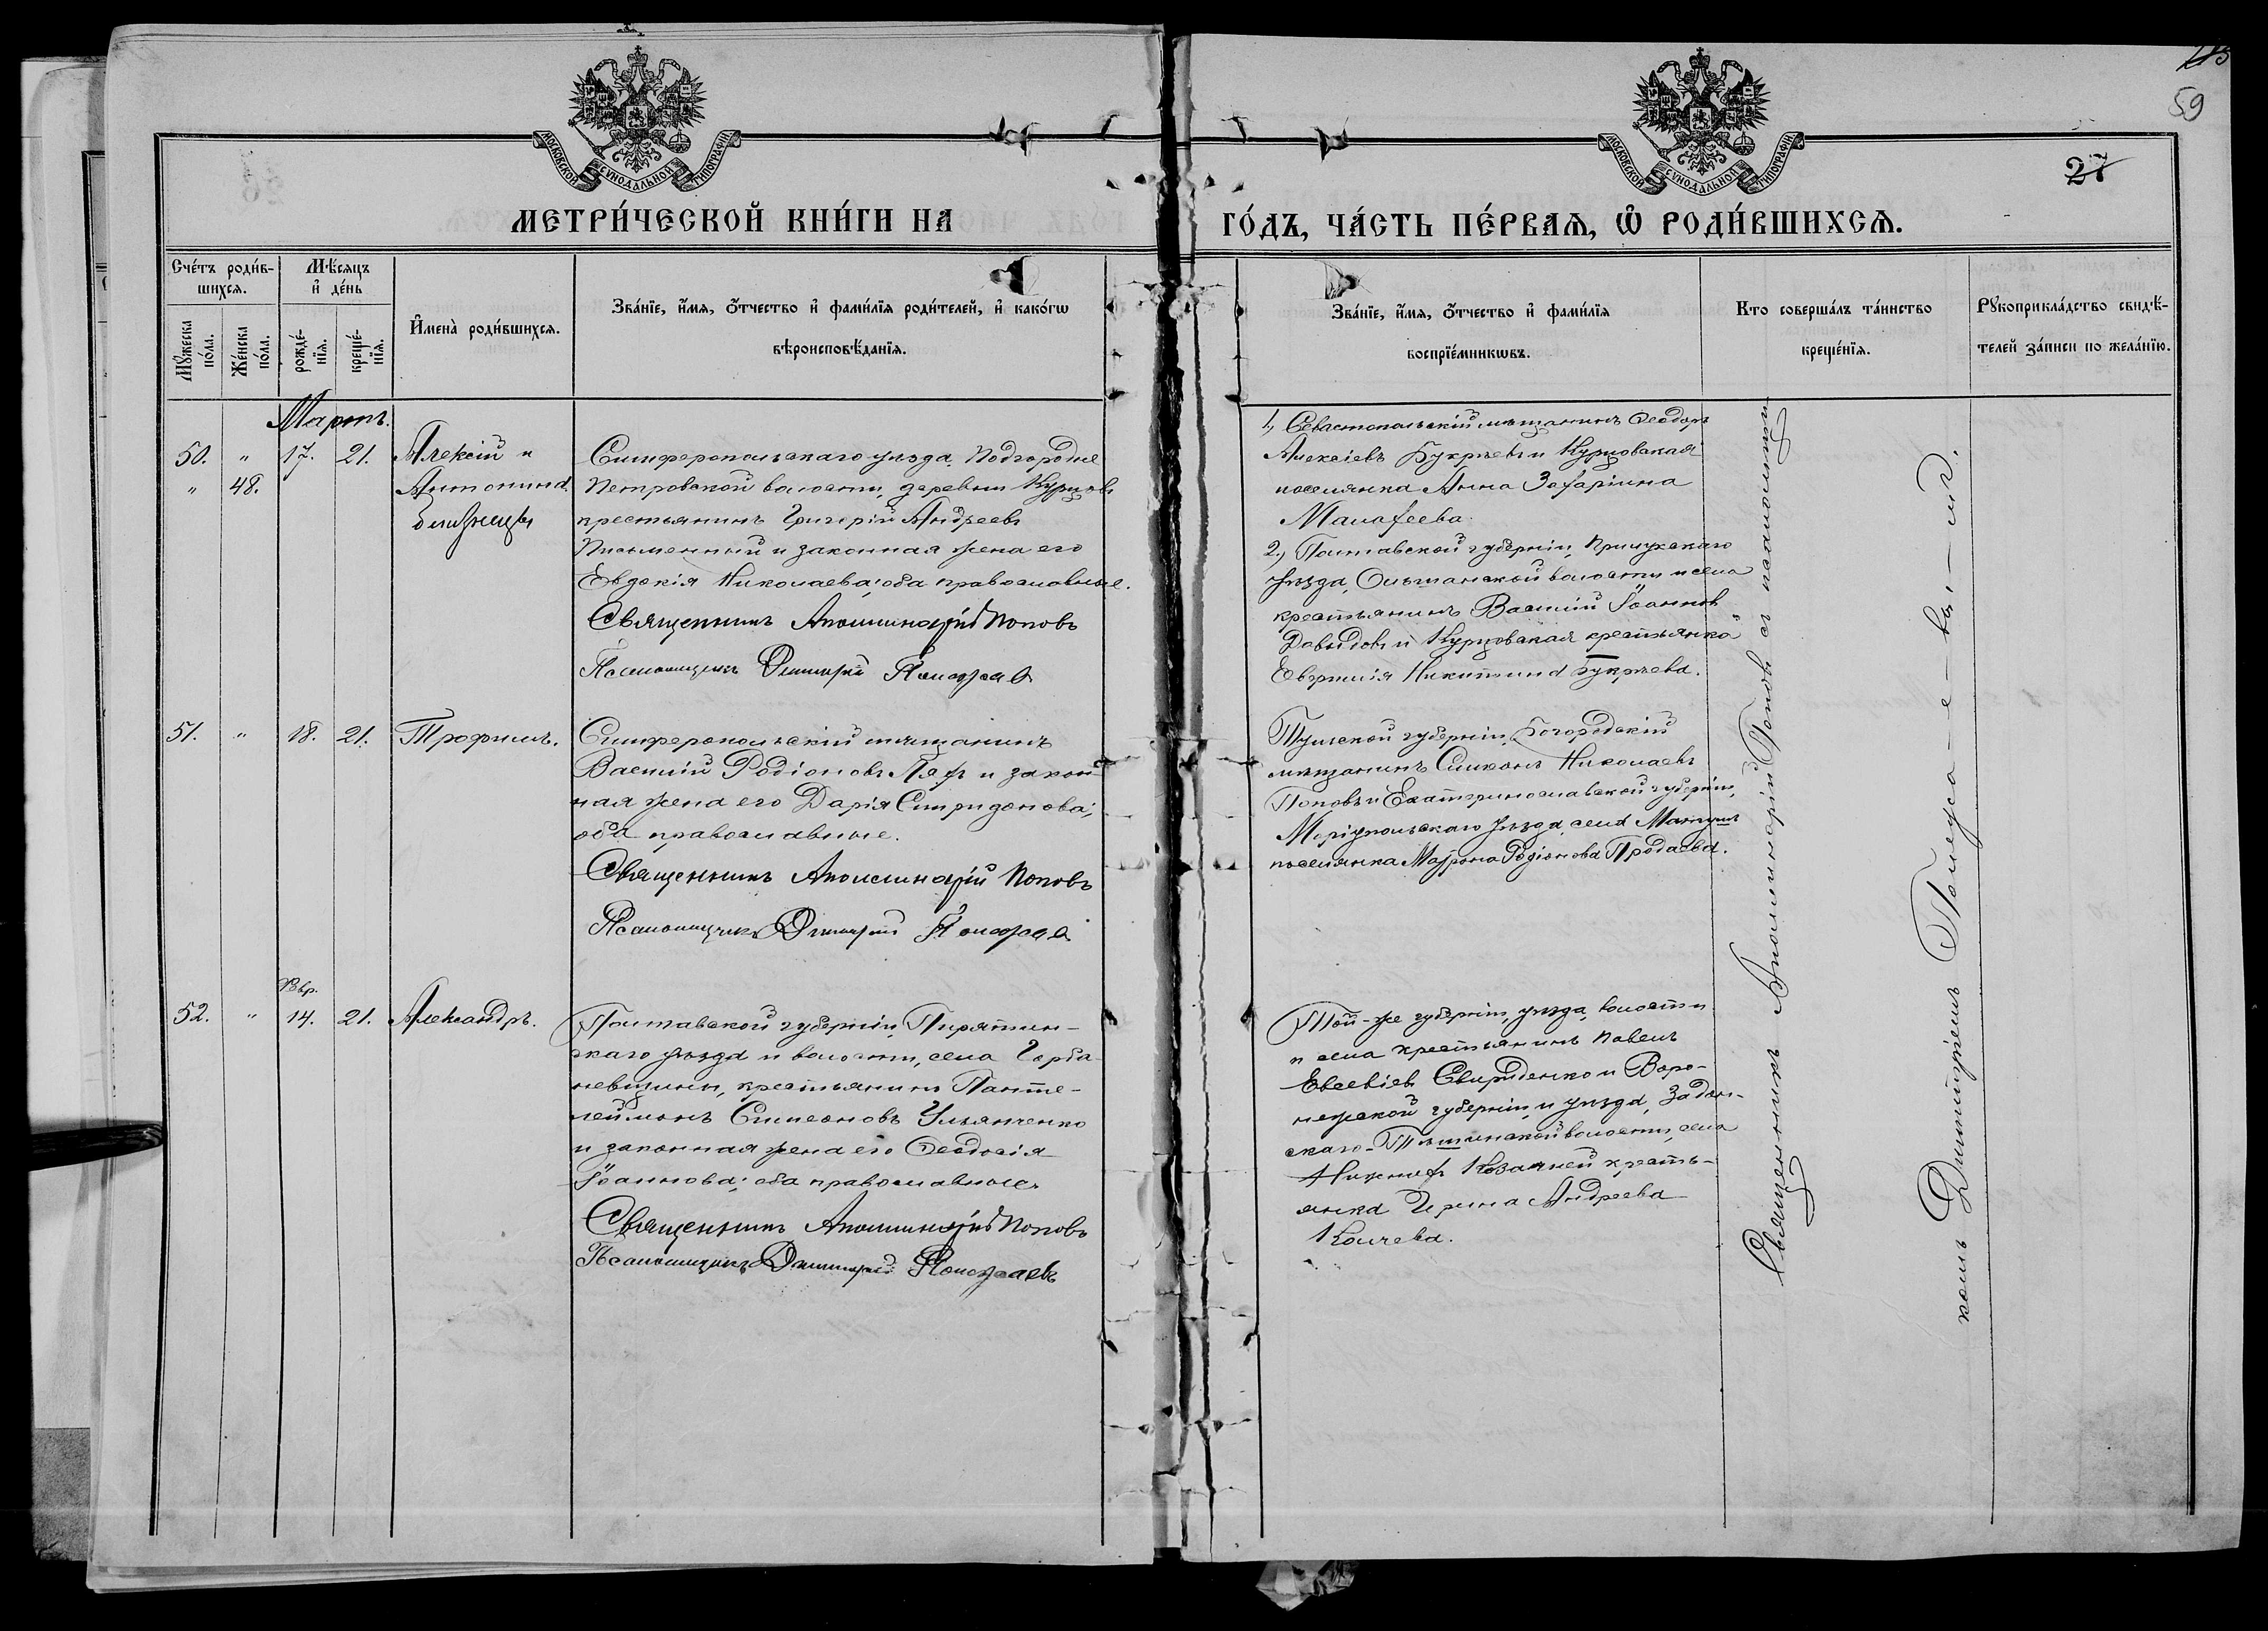 59
27
МОСКОВСКОЙ СѴНОДАЛЬНОЙ ТИПОГРАФІИ
МОСКОВСКОЙ СѴНОДАЛЬНОЙ ТИПОГРАФІИ
МЕТРИ́ЧЕСКОЙ КНИ́ГИ НА
ГО́ДЪ, ЧА́СТЬ ПЕ́РВАѦ, Ѽ РОДИ́ВШИХСѦ.
Сче́тъ роди́в-
шихсѧ.
Мꙋ́жеска по́ла.
Же́нска по́ла.
Мѣ́сѧцъ
и҆ де́нь
рожде́-
нїѧ.
креще́-
нїѧ.
И҆мена̀ роди́вшихсѧ.
Зва́нїе, и҆́мѧ, ѻ҆́тчество и҆ фами́лїѧ роди́телей, и҆ како́гѡ
вѣроисповѣ́данїѧ.
Зва́нїе, и҆́мѧ, ѻ҆́тчество и҆ фами́лїѧ
воспрїе́мникѡвъ.
Кто соверша́лъ та́инство
креще́нїѧ.
Рꙋкоприкла́дство свидѣ́-
телей за́писи по жела́нїю.
Мартъ.
50. " 17. 21. Алексій и
" 48. Антонина
близнецы
Симферопольскаго уѣзда, Подгородне
Петровской волости, деревни Курцовъ
крестьянинъ Григорій Андреевъ
Письменный и законная жена его
Евдокія Николаева; оба православные.
Священникъ Аполлинарій Поповъ
Псаломщикъ Димитрій
1, Севастопольскій мѣщанинъ Ѳеодоръ
Алексіевъ Букрѣевъ и Курцовская
поселянка Анна Захаріина
Малафеева.
2, Полтавской губерніи, Прилукскаго
уѣзда, Ольшанской волости и села
крестьянинъ Василій Іоанновъ
Давыдовъ и Курцовская крестьянка
Евфимія Никитина Букрѣева.
51. " 18. 21. Трофимъ.
Симферопольскій мѣщанинъ
Василій Родіоновъ Ляхъ и закон-
ная жена его Дарія Спиридонова;
оба православные.
Священникъ Аполлинарій Поповъ
Псаломщикъ Димитрій
Тульской губерніи, Богородскій
мѣщанинъ Симеонъ Николаевъ
Поповъ и Екатеринославской губерніи,
Маріупольскаго уѣзда, села Мангушъ
поселянка Матрона Родіонова
52. " Февр. 14. 21. Александръ.
Полтавской губерніи, Пирятин-
скаго уѣзда и волости, села Горба-
невщины, крестьянинъ Панте-
леймонъ Симеоновъ Ульянченко
и законная жена его Ѳеодосія
Іоаннова; оба православные.
Священникъ Аполлинарій Поповъ
Псаломщикъ Димитрій
Той-же губерніи, уѣзда, волости
и села крестьянинъ Павелъ
Евсевіевъ Свириденко и Воро-
нежской губерніи и уѣзда, Задон-
скаго волости, села
Казачей кресть-
янка Ирина Андреева
Колчева.
Священникъ Аполлинарій Поповъ съ псаломщи-
комъ Димитріемъ